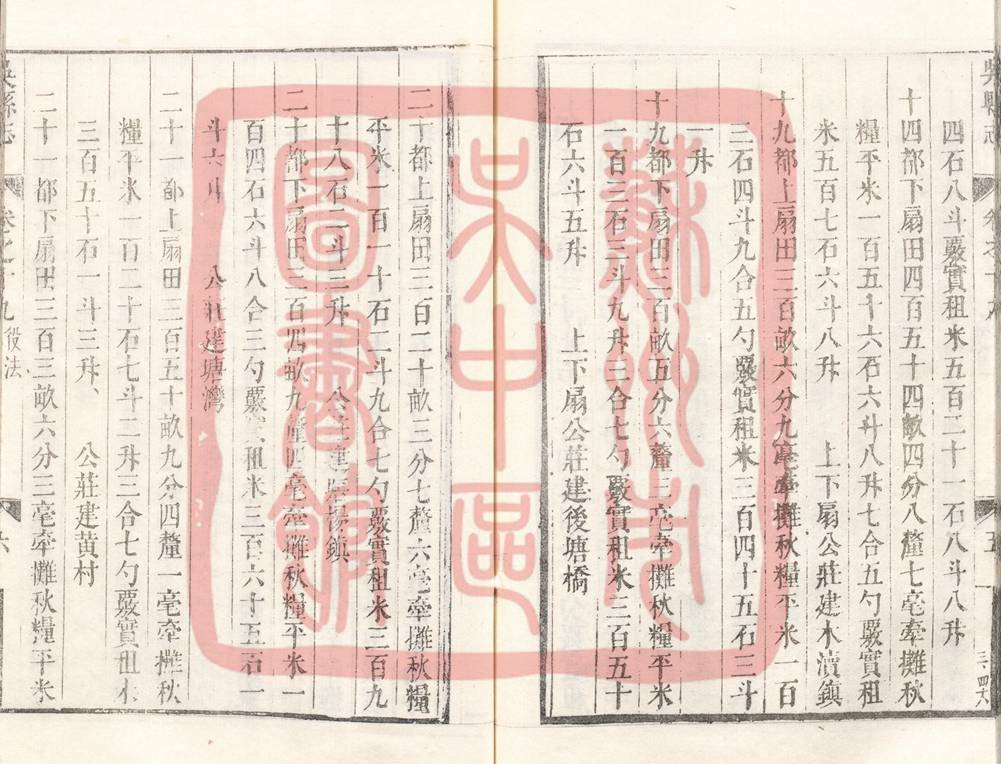 吳縣志
四石八斗覈實租米五百二十一石八斗八升
十四都下扇田四百五十四畝四分八釐七毫牽攤秋
糧平米一百五十六石六斗八升七合五勺覈實租
米五百七石六斗八升 上下扇公莊建木瀆鎮
十九都上扇田三百畝六分九釐牽攤秋糧平米一百
三石四斗九合五勺覈實租米三百四十五石三斗
一升
十九都下扇田三百畝五分六釐二毫牽攤秋糧平米
一百三石三斗九升二合七勺覈實租米三百五十
石六斗五升 上下扇公莊建後塘橋
卷之十九
五
二十都上扇田三百二十畝三分七釐六毫牽攤秋糧
平米一百一十石二斗九合七勺覈實租米三百九
十八石二斗三升 公莊建鎮
二十都下扇田三百四畝九釐四毫牽攤秋糧平米一
百四石六斗八合三勺覈實租米三百六十五石一
斗六升 公莊建塘灣
二十一都上扇田三百五十畝九分四釐一毫牽攤秋
糧平米一百二十石七斗二升三合七勺覈實租米
三百五十石一斗三升 公莊建黃村
二十一都下扇田三百三畝六分三毫牽攤秋糧平米
吳縣志
卷之十九 役法
六
蘇州市
吳中區
圖書館